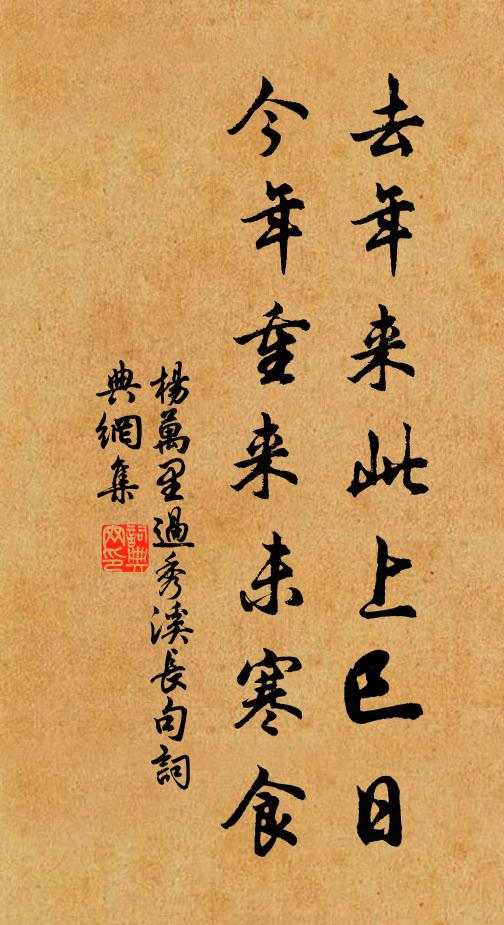 去年来此上巳日
今年重来未寒食
楊萬里過秀溪長句詞
典網集
詞典
网印